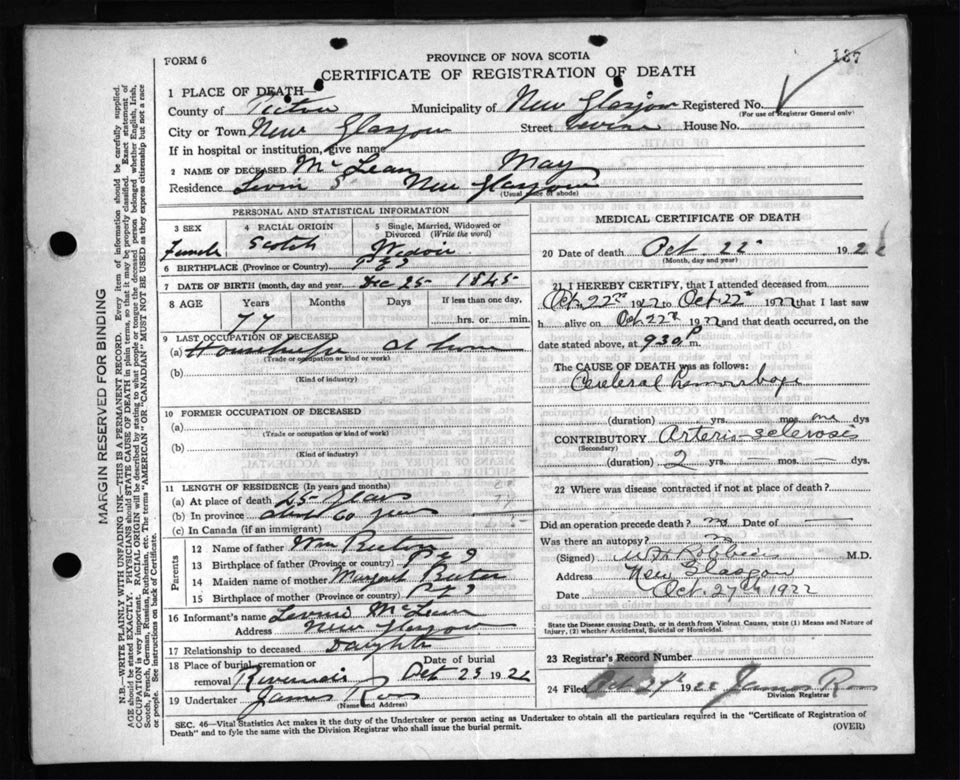 FORM 6
PROVINCE OF NOVA SCOTIA
187
CERTIFICATE OF REGISTRATION OF DEATH
1 PLACE OF DEATH—
County of Pictou Municipality of New Glasgow Registered No.
(For use of Registrar General only)
City or Town New Glasgow Street House No.
If in hospital or institution, give name
2 NAME OF DECEASED Mc Lean May
Residence New Glasgow
(Usual place of abode)
PERSONAL AND STATISTICAL INFORMATION
3 SEX Female
4 RACIAL ORIGIN Scotch
5 Single, Married, Widowed or Divorced (Write the word) Widow
6 BIRTHPLACE (Province or Country) P E I
7 DATE OF BIRTH (month, day and year) Dec 25 1845
8 AGE Years Months Days If less than one day,
77 hrs. or min.
9 LAST OCCUPATION OF DECEASED
(a) Housekeeper at home
(Trade or occupation or kind or work)
(b)
(Kind of industry)
10 FORMER OCCUPATION OF DECEASED
(a)
(Trade or occupation or kind of work)
(b)
(Kind of industry)
11 LENGTH OF RESIDENCE (In years and months)
(a) At place of death 25 Years
(b) In province about 60 years
(c) In Canada (if an immigrant)
Parents
12 Name of father Wm
13 Birthplace of father (Province or country) P E I
14 Maiden name of mother Margaret
15 Birthplace of mother (Province or country) P E I
16 Informant's name McLean
Address New Glasgow
17 Relationship to deceased Daughter
18 Place of burial, cremation or removal Riverside Date of burial Oct 23 1922
19 Undertaker James Ross
(Name and Address)
MEDICAL CERTIFICATE OF DEATH
20 Date of death Oct 22 192
(Month, day and year)
21 I HEREBY CERTIFY, that I attended deceased from
Oct. 22nd 1922 to Oct. 22nd 1922 that I last saw
h alive on Oct 22nd 1922 and that death occurred, on the
date stated above, at 930 P m.
The CAUSE OF DEATH was as follows:
Cerebral hemorrhage
(duration) yrs. mos. one dys
CONTRIBUTORY Arterio sclerosis
(Secondary)
(duration) 2 yrs. mos. dys.
22 Where was disease contracted if not at place of death?
Did an operation precede death? no Date of
Was there an autopsy? no
(Signed) M.D.
Address New Glasgow
Date Oct. 27th 1922
State the Disease causing Death, or in death from Violent Causes, state (1) Means and Nature of
Injury, (2) whether Accidental, Suicidal or Homicidal.
23 Registrar's Record Number
24 Filed Oct 27th 1922 James Ross
Division Registrar
SEC. 46—Vital Statistics Act makes it the duty of the Undertaker or person acting as Undertaker to obtain all the particulars required in the "Certificate of Registration of
Death" and to fyle the same with the Division Registrar who shall issue the burial permit. (OVER)
MARGIN RESERVED FOR BINDING
N.B.—WRITE PLAINLY WITH UNFADING INK—THIS IS A PERMANENT RECORD. Every item of information should be carefully supplied.
AGE should be stated EXACTLY. PHYSICIANS should STATE CAUSE OF DEATH in plain terms, so that it may be properly classified. Exact statement of
OCCUPATION is very important. RACIAL ORIGIN will be described by stating to what people or tongue the deceased person belonged whether English, Irish,
Scotch, French, German, Russian, Ruthenian, etc. The terms "AMERICAN" OR "CANADIAN" MUST NOT BE USED as they express citizenship but not a race
or people. See instructions on back of Certificate.